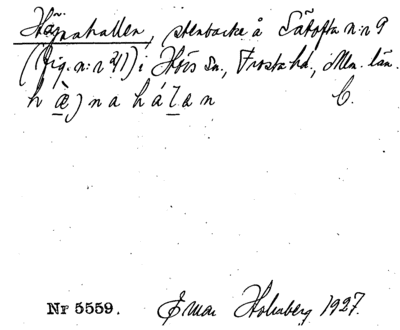 Hägnahallen, stenbacke å Sätofta n:r 9
(fig. n:r 241) i Hörs sn., Frosta hd., Mlm. län.
h æ) n a h á l a n C.
Nr 5559. Einar Holmberg 1927.